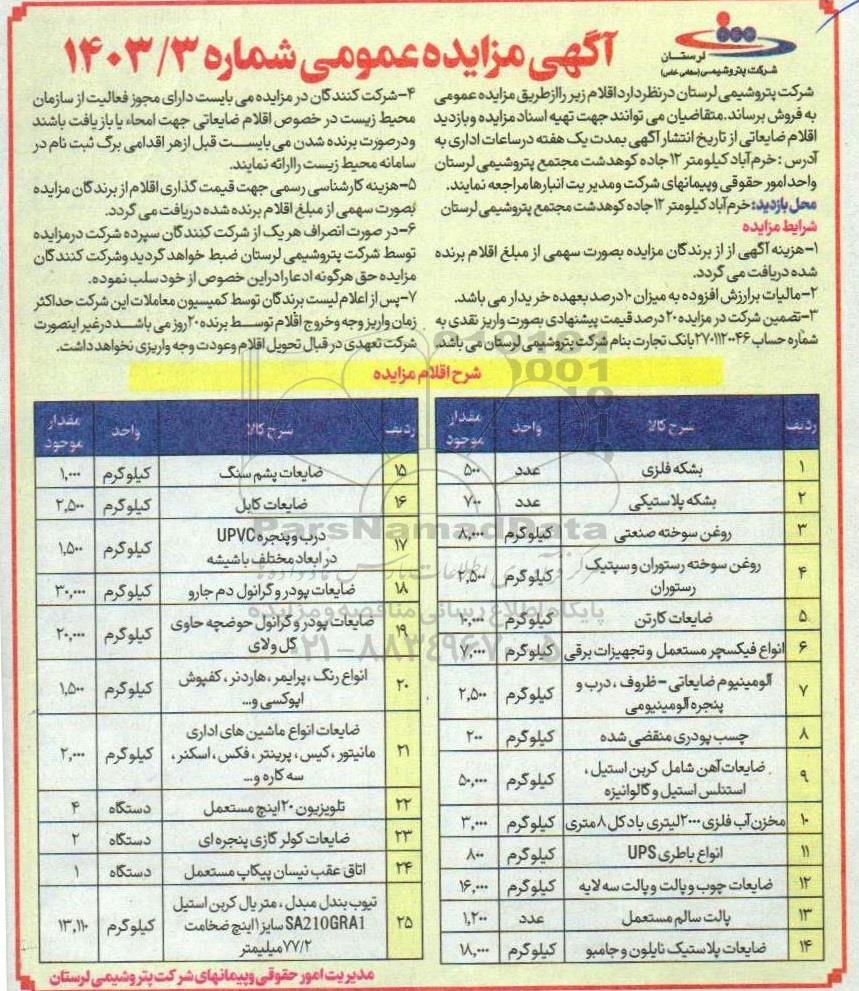 لرستان
شرکت پتروشیمی (سهامی خاص)
آگهی مزایده عمومی شماره ۱۴۰۳/۳
شرکت پتروشیمی لرستان در نظر دارد اقلام زیر را از طریق مزایده عمومی
به فروش برساند. متقاضیان می توانند جهت تهیه اسناد مزایده و بازدید
اقلام ضایعاتی از تاریخ انتشار آگهی بمدت یک هفته در ساعات اداری به
آدرس : خرم آباد کیلومتر ۱۲ جاده کوهدشت مجتمع پتروشیمی لرستان
واحد امور حقوقی و پیمانهای شرکت و مدیریت انبارها مراجعه نمایند.
محل بازدید: خرم آباد کیلومتر ۱۲ جاده کوهدشت مجتمع پتروشیمی لرستان
شرایط مزایده
۱-هزینه آگهی از از برندگان مزایده بصورت سهمی از مبلغ اقلام برنده
شده دریافت می گردد.
۲-مالیات بر ارزش افزوده به میزان ۱۰ درصد بعهده خریدار می باشد.
۳-تضمین شرکت در مزایده ۲۰ درصد قیمت پیشنهادی بصورت واریز نقدی به
شماره حساب ۲۷۰۱۱۲۰۰۴۶ بانک تجارت بنام شرکت پتروشیمی لرستان می باشد.
۴-شرکت کنندگان در مزایده می بایست دارای مجوز فعالیت از سازمان
محیط زیست در خصوص اقلام ضایعاتی جهت امحاء یا بازیافت باشند
و درصورت برنده شدن می بایست قبل از هر اقدامی برگ ثبت نام در
سامانه محیط زیست را ارائه نمایند.
۵-هزینه کارشناسی رسمی جهت قیمت گذاری اقلام از برندگان مزایده
بصورت سهمی از مبلغ اقلام برنده شده دریافت می گردد.
۶-در صورت انصراف هر یک از شرکت کنندگان سپرده شرکت در مزایده
توسط شرکت پتروشیمی لرستان ضبط خواهد گردید و شرکت کنندگان
مزایده حق هرگونه ادعا را در این خصوص از خود سلب نموده.
۷-پس از اعلام لیست برندگان توسط کمیسیون معاملات این شرکت حداکثر
زمان واریز وجه و خروج اقلام توسط برنده ۲۰ روز می باشد در غیر اینصورت
شرکت تعهدی در قبال تحویل اقلام وعودت وجه واریزی نخواهد داشت.
شرح اقلام مزایده
ردیف شرح کالا واحد مقدار موجود
۱ بشکه فلزی عدد ۵۰۰
۲ بشکه پلاستیکی عدد ۷۰۰
۳ روغن سوخته صنعتی کیلوگرم ۸,۰۰۰
۴ روغن سوخته رستوران و سپتیک رستوران کیلوگرم ۲,۵۰۰
۵ ضایعات کارتن کیلوگرم ۱۰,۰۰۰
۶ انواع فیکسچر مستعمل و تجهیزات برقی کیلوگرم ۷,۰۰۰
۷ آلومینیوم ضایعاتی - ظروف ، درب و پنجره آلومینیومی کیلوگرم ۲,۵۰۰
۸ چسب پودری منقضی شده کیلوگرم ۲۰۰
۹ ضایعات آهن شامل کربن استیل ، استنلس استیل و گالوانیزه کیلوگرم ۵۰,۰۰۰
۱۰ مخزن آب فلزی ۲۰۰۰ لیتری با دکل ۸ متری کیلوگرم ۳,۰۰۰
۱۱ انواع باطری UPS کیلوگرم ۸۰۰
۱۲ ضایعات چوب و پالت و پالت سه لایه کیلوگرم ۱۶,۰۰۰
۱۳ پالت سالم مستعمل عدد ۱,۲۰۰
۱۴ ضایعات پلاستیک نایلون و جامبو کیلوگرم ۱۸,۰۰۰
ردیف شرح کالا واحد مقدار موجود
۱۵ ضایعات پشم سنگ کیلوگرم ۱,۰۰۰
۱۶ ضایعات کابل کیلوگرم ۲,۵۰۰
۱۷ درب و پنجره UPVC در ابعاد مختلف باشیشه کیلوگرم ۱,۵۰۰
۱۸ ضایعات پودر و گرانول دم جارو کیلوگرم ۳۰,۰۰۰
۱۹ ضایعات پودر و گرانول حوضچه حاوی گل و لای کیلوگرم ۲۰,۰۰۰
۲۰ انواع رنگ ، پرایمر ، هاردنر ، کفپوش اپوکسی و... کیلوگرم ۱,۵۰۰
۲۱ ضایعات انواع ماشین های اداری مانیتور ، کیس ، پرینتر ، فکس ، اسکنر ، سه کاره و... کیلوگرم ۲,۰۰۰
۲۲ تلویزیون ۲۰ اینچ مستعمل دستگاه ۴
۲۳ ضایعات کولر گازی پنجره ای دستگاه ۲
۲۴ اتاق عقب نیسان پیکاپ مستعمل دستگاه ۱
۲۵ تیوب بندل مبدل ، متریال کربن استیل SA210GRA1 سایز ۱ اینچ ضخامت ۷۷/۲ میلیمتر کیلوگرم ۱۳,۱۱۰
مدیریت امور حقوقی و پیمانهای شرکت پتروشیمی لرستان
ParsNamadData
پایگاه اطلاع رسانی مناقصه و مزایده